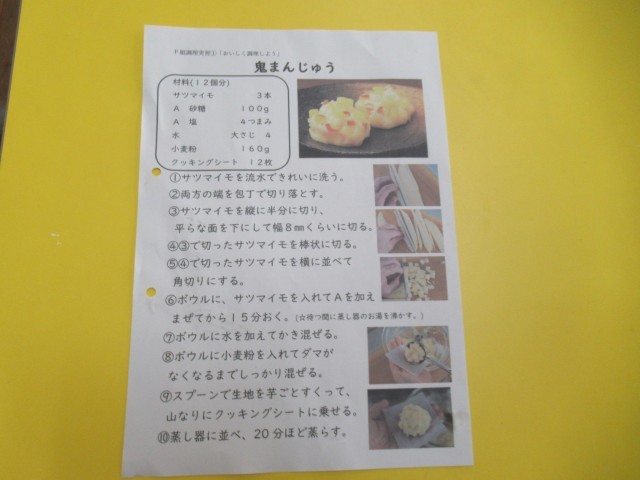 F組調理実習①「おいしく調理しよう」
鬼まんじゅう
材料(12個分)
サツマイモ 3本
A 砂糖 100g
A 塩 4つまみ
水 大さじ 4
小麦粉 160g
クッキングシート 12枚
①サツマイモを流水できれいに洗う。
②両方の端を包丁で切り落とす。
③サツマイモを縦に半分に切り、
平らな面を下にして幅8㎜くらいに切る。
④③で切ったサツマイモを棒状に切る。
⑤④で切ったサツマイモを横に並べて
角切りにする。
⑥ボウルに、サツマイモを入れてAを加え
まぜてから15分おく。(☆待つ間に蒸し器のお湯を沸かす。)
⑦ボウルに水を加えてかき混ぜる。
⑧ボウルに小麦粉を入れてダマが
なくなるまでしっかり混ぜる。
⑨スプーンで生地を芋ごとすくって、
山なりにクッキングシートに乗せる。
⑩蒸し器に並べ、20分ほど蒸らす。